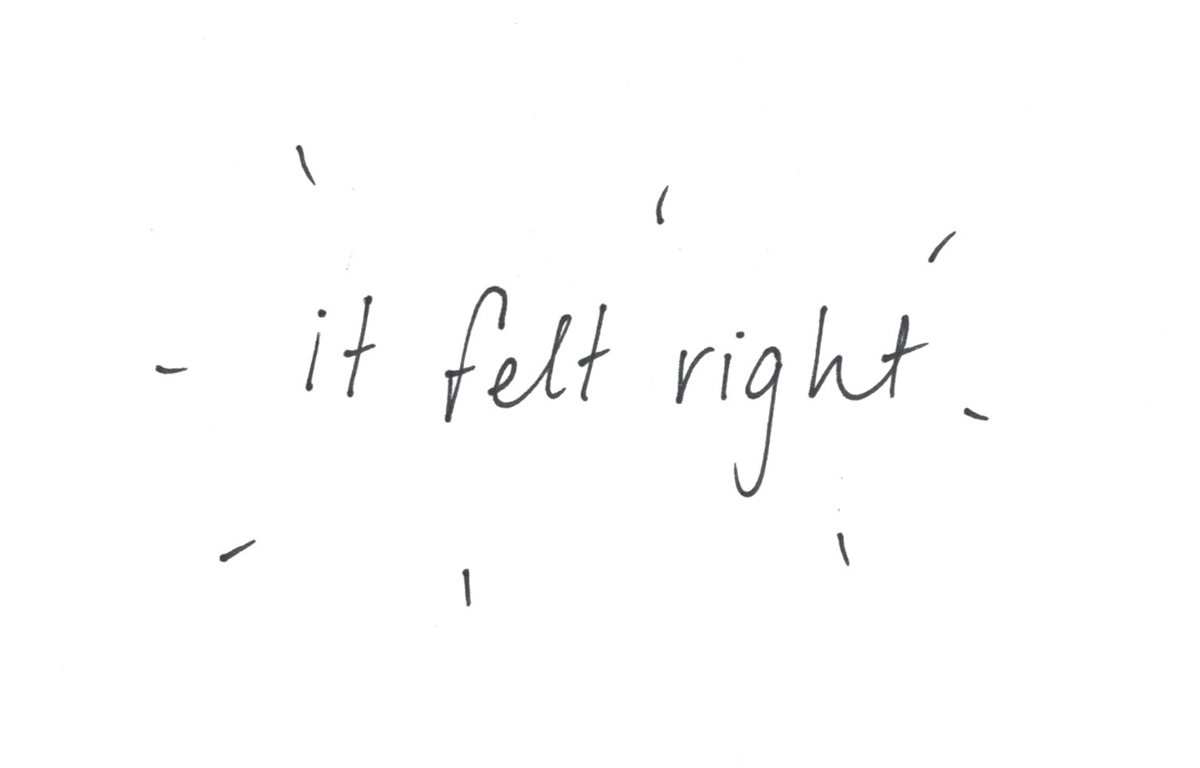 it felt right